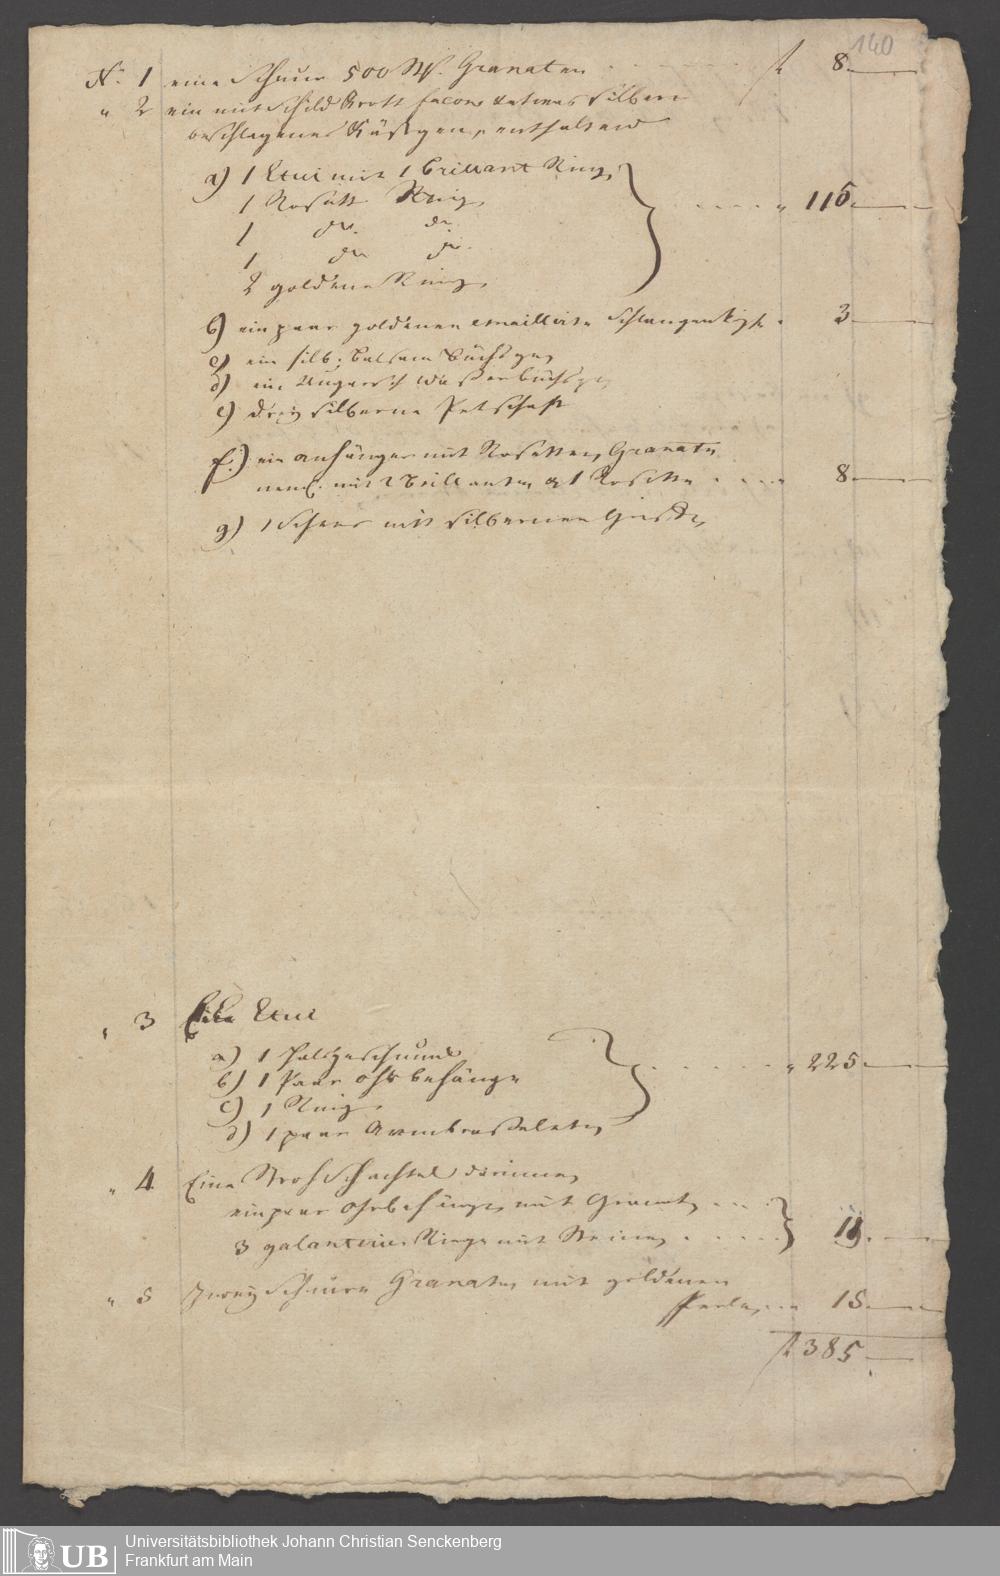 140
N. 1 eine Schnur 500 St. Granaten . . . . . . f 8.—
" 2 ein mit Schild Krott facon etwas silber
beschlagenes Kästgen, enthaltend
a) 1 Etui mit 1 Brillant Ring,
1 Rosett Ring,
1 do. do.
1 do do.
2 goldene Ringe, . . . . " 115.—
b) ein paar goldenen emaillirte Schlangenköpfe . 3.—
c) ein silb: Balsam Büchsgen
d) ein Ungarisch Wasserbüchsgen
e) drey silberne Petschaft
f.) ein anhänger mit Rosetten, Granaten
mit 2 Brillanten & 1 Rosette . . . . 8.—
g) 1 Scheer mit silbernen
" 3 Etui
a) 1 Halsgeschmuck
b) 1 Paar Ohrbehänge
c) 1 Ring,
d) 1 paar Armbrasseleten . . . . . . " 225.—
" 4 Eine Strohschachtel darinnen
ein paar Ohrbehänge, mit Granat, . . .
3 galanterie Ringe mit Steinen . . . . .
" 5 Zwey Schnüre Granaten mit goldenen
Perlen, . . 15.—
f 385.—
UB
Universitätsbibliothek Johann Christian Senckenberg
Frankfurt am Main